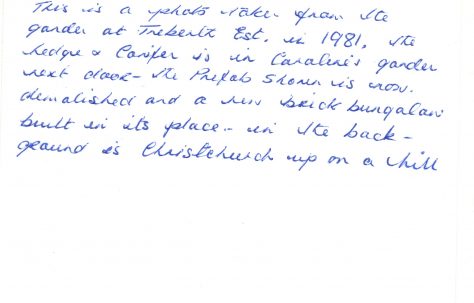 This is a photo taken from the
garden at Trebertz Est. in 1981, the
hedge & Conifer is in Caroline's garden
next door - the Prefab shown is now.
demolished and a new brick bungalow
built in its place - in the back-
ground is Christchurch up on a hill